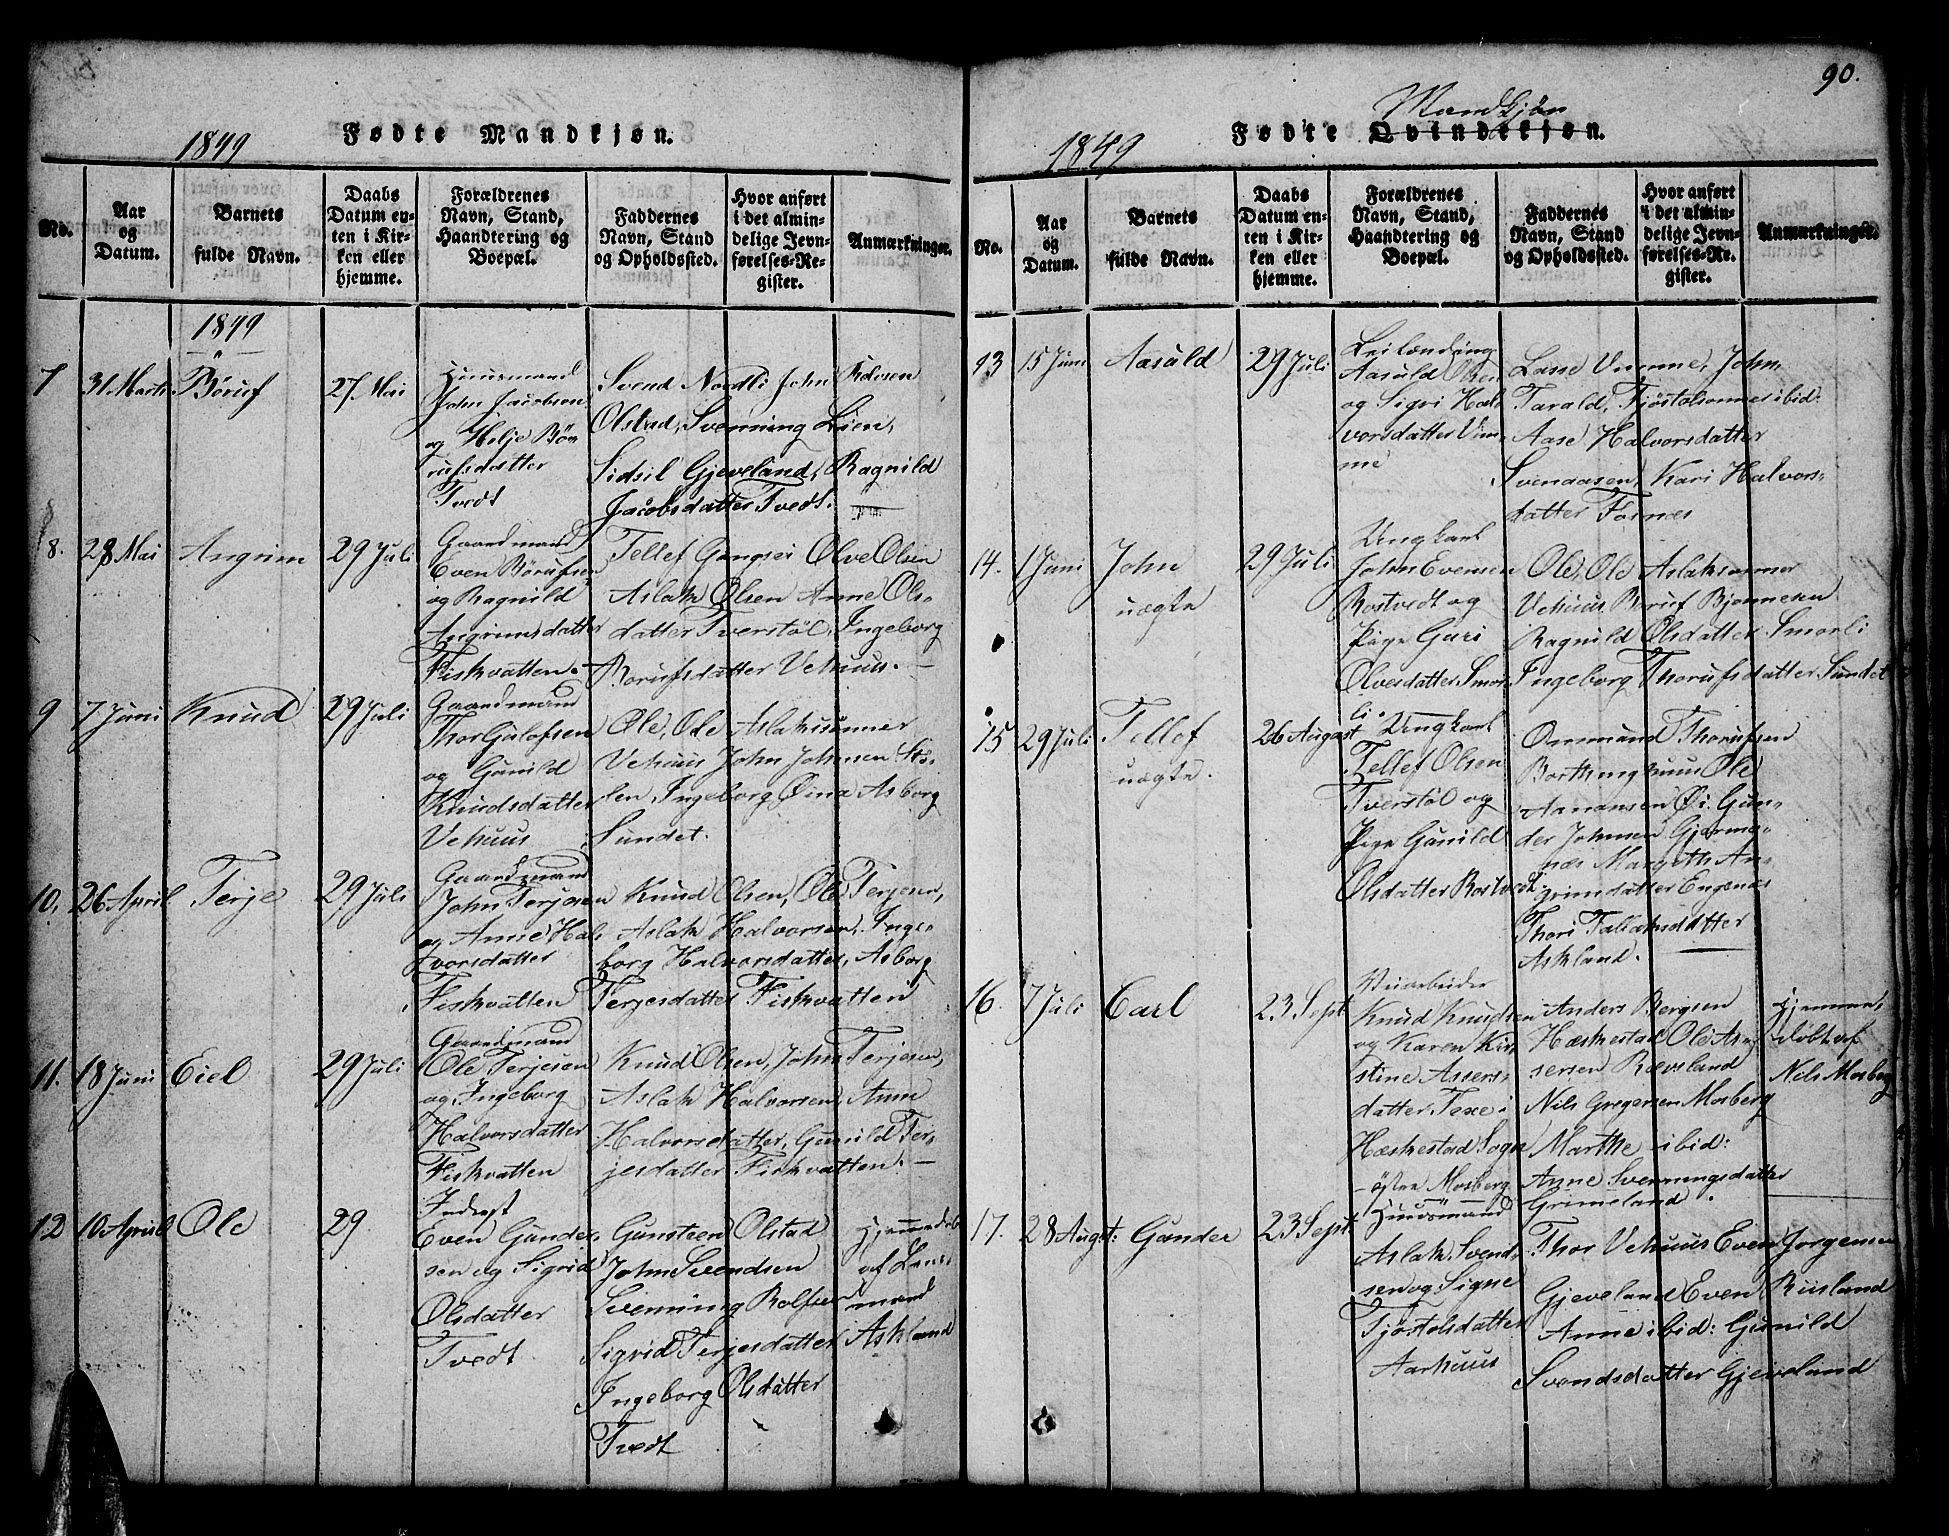 90.
1849
Fødte Mandkjøn.
No.
Aar og Datum.
Barnets fulde Navn.
Daabs Datum enten i Kirken eller hjemme.
Forældrenes Navn, Stand, Haandtering og Boepæl.
Faddernes Navn, Stand og Opholdssted.
Hvor anført i det almindelige Jevnførelses-Register.
Anmærkninger.
1849
7
31 Marts
Børuf
27 Mai
Huusmand
John Jacobsen
og Helje Bø-
rufsdatter
Tvedt
Svend Nordli John
Olstad, Svenning Lien,
Sidsil Gjeveland, Ragnild
Jacobsdatter Tvedt.
8.
28 Mai
Angrim
29 Juli
Gaardmand
Even Børufsen
og Ragnild
Angrimsdatter
Fiskvatten.
Tellef Gangsei Olve Olsen
Aslak Olsen Anne Ols-
datter Tverstøl, Ingeborg
Borufsdatter Vehuus.
9
7 Juni
Knud
29 Juli
Gaardmand
Thor
og Gunild
Knudsdatter
Vehuus
Ole, Ole Aslaksønner
Vehuus John Johnsen Stø-
len, Ingeborg Øina Asborg
Sundet.
10.
26 April
Terje
29 Juli
Gaardmand
John Terjesen
og Anne Hal-
vorsdatter
Fiskvatten
Knud Olsen, Ole Terjesen,
Aslak Halvorsen, Inge-
borg Halvorsdatter, Asborg
Terjesdatter Fiskvatten
11.
18 Juni
Eiel
29 Juli
Gaardmand
Ole Terjesen
og Ingeborg
Halvorsdatter
Fiskvatten
Knud Olsen, John Terjesen,
Aslak Halvorsen, Anne
Halvorsdatter, Gunild Ter-
jesdatter Fiskvatten.
12
10 April
Ole
29
Inderst
Even Gunder-
sen og Sigrid
Olsdatter
Tvedt
Gunsteen Olstad
John Svendsen
Svenning Rolfsen
Sigrid Terjesdatter
Ingeborg Olsdatter
Tvedt
Hjemmedøbt
af Lens-
mand
Askland
1849
Fødte Qvindekjøn.
Mandkjøn
No.
Aar og Datum.
Barnets fulde Navn.
Daabs Datum enten i Kirken eller hjemme.
Forældrenes Navn, Stand, Haandtering og Boepæl.
Faddernes Navn, Stand og Opholdssted.
Hvor anført i det almindelige Jevnførelses-Register.
Anmærkninger.
13
15 Juni
Aasuld
29 Juli
Leilænding
Aasuld Olsen
og Sigri Hal-
vorsdatter Vim-
me
Lasse Vimme, John,
Tarald, Tjøstolsønner ibid:
Aase Halvorsdatter
Svenaasen, Kari Halvors-
datter Fosnæs
14.
1 Juni
John
uægte
29 Juli
Ungkarl
John Evensen
Rostvedt og
Pige Guri
Olvesdatter Smor-
li.
Ole, Ole Aslaksønner
Vehuus Boruf Bjonnesen
Ragnild Olsdatter Smorli
Ingeborg Thorufsdatter Sundet
15
29 Juli
Tellef
uægte.
26 August
Ungkarl
Tellef Olsen
Tverstøl og
Pige Gunild
Olsdatter Rostvedt
Ommund Thorufsen
Ole
Aanansen Øi. Gun-
der Johnsen
Margethe An-
grimdatter Engenæs
Thori
Askland.
16.
7 Juli
Carl
23 Sept.
Veiarbeider
Knud Knudsen
og Karen Kir-
stine Assers-
datter Texe i
Hæskestad Sogn
østre Mosberg
Anders Bergsen
Hæskestad Ole As-
sersen Rævsland
Nils Gregersen Mosberg
Marthe ibid:
Anne Svenningsdatter
Grimeland.
Hjemme-
døbt af
Nils Mosberg
17.
28 Augst:
Gunder
23 Sept.
Huusmand
Aslak Svend-
sen og Signe
Tjøstolsdatter
Aarhuus
Thor Vehuus Even Jorgensen
Gjeveland Even Riisland
Anne ibid: Gunild
Svendsdatter Gjeveland